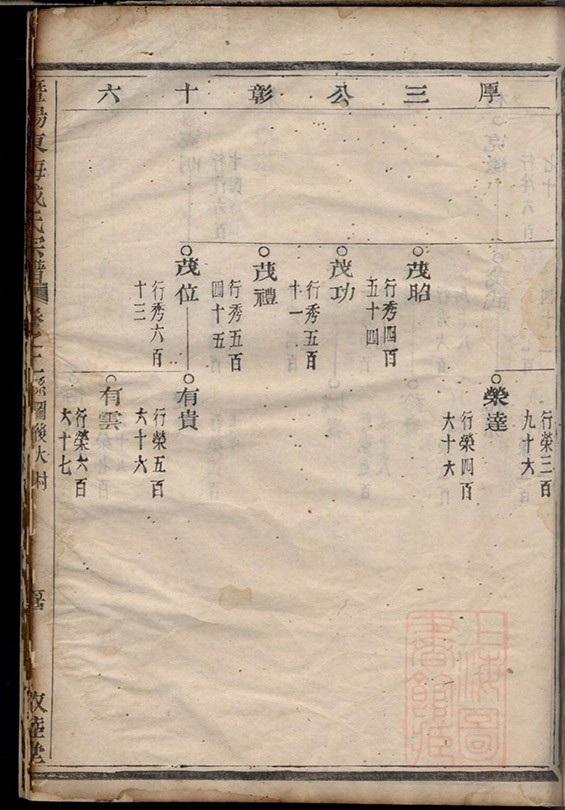 厚三公彰十六
行榮三百
九十六
榮達
行榮四百
六十六
茂昭
行秀四百
五十四
茂功
行秀五百
十一
茂禮
行秀五百
四十五
茂位
行秀六百
十三
有貴
行榮五百
六十六
有雲
行榮六百
六十七
暨陽東海成氏宗譜
系圖後大
敦睦堂
上海圖書館藏